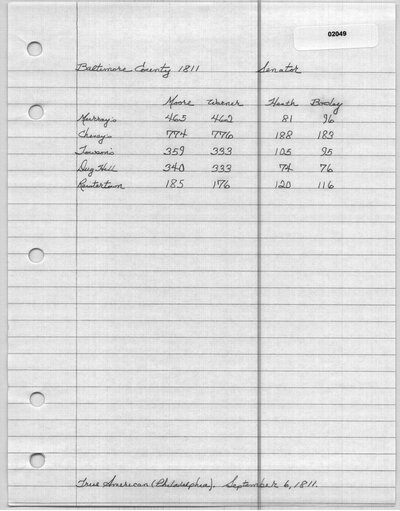 02049
Baltimore County 1811 Senator
Moore Warner Heath Bosley
Murray's 465 462 81 96
Cheney's 774 776 188 183
Towson's 359 333 105 95
Dug Hill 340 333 74 76
Reistertown 185 176 120 116
True American (Philadelphia). September 6, 1811.